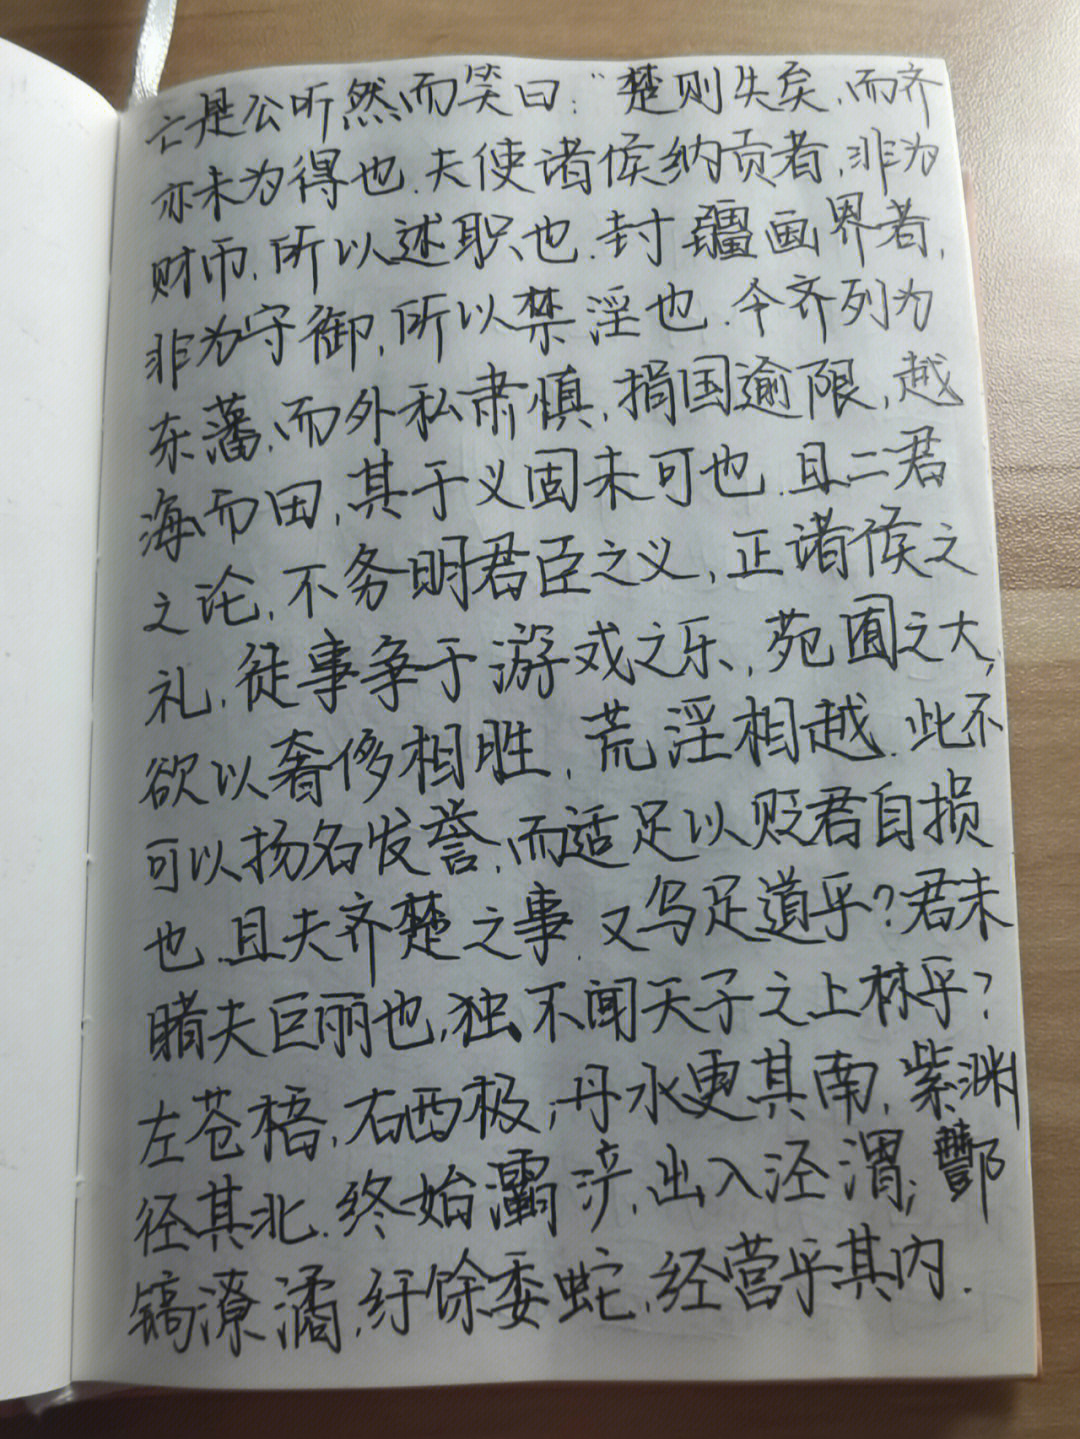 亡是公听然而笑曰：“楚则失矣，而齐
亦未为得也.夫使诸侯纳贡者，非为
财币，所以述职也.封疆画界者，
非为守御，所以禁淫也.今齐列为
东藩，而外私肃慎，捐国逾限，越
海而田，其于义固未可也.且二君
之论，不务明君臣之义，正诸侯之
礼，徒事争于游戏之乐，苑囿之大，
欲以奢侈相胜，荒淫相越.此不
可以扬名发誉，而适足以贬君自损
也.且夫齐楚之事.又乌足道乎？君未
睹夫巨丽也，独不闻天子之上林乎？
左苍梧，右西极，丹水更其南，紫渊
径其北.终始灞浐，出入泾渭；酆
镐潦潏，纡馀委蛇，经营乎其内.